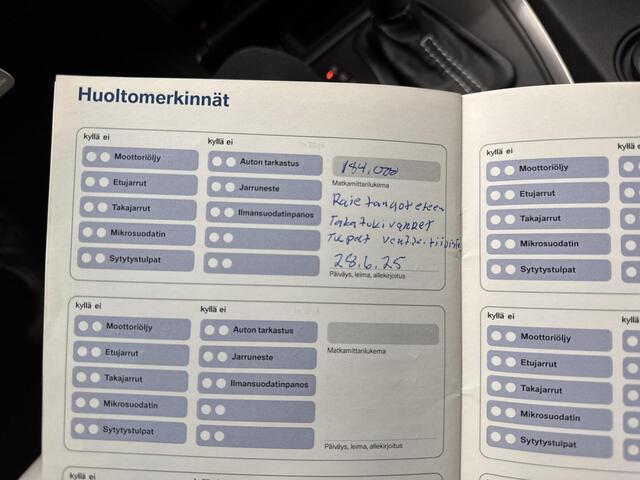 Huoltomerkinnät
kyllä ei
Moottoriöljy
Etujarrut
Takajarrut
Mikrosuodatin
Sytytystulpat
kyllä ei
Auton tarkastus
Jarruneste
Ilmansuodatinpanos
184,000
Matkamittarilukema
Takatuki
28.6.25
Päiväys, leima, allekirjoitus
kyllä ei
Moottoriöljy
Etujarrut
Takajarrut
Mikrosuodatin
Sytytystulpat
kyllä ei
Auton tarkastus
Jarruneste
Ilmansuodatinpanos
Matkamittarilukema
Päiväys, leima, allekirjoitus
kyllä ei
kyllä ei
kyllä ei
Moottoriöljy
Etujarrut
Takajarrut
Mikrosuodatin
Sytytystulpat
kyllä
kyllä ei
Moottoriöljy
Etujarrut
Takajarrut
Mikrosuodatin
Sytytystulpat